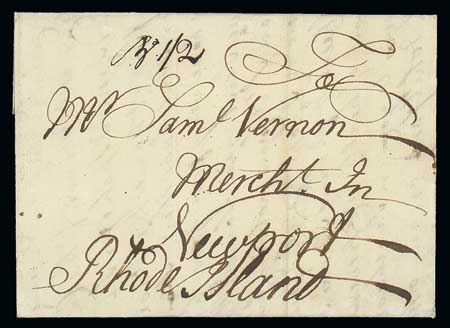 To
Mr Saml Vernon
Mercht. In
Newport
Rhode Island